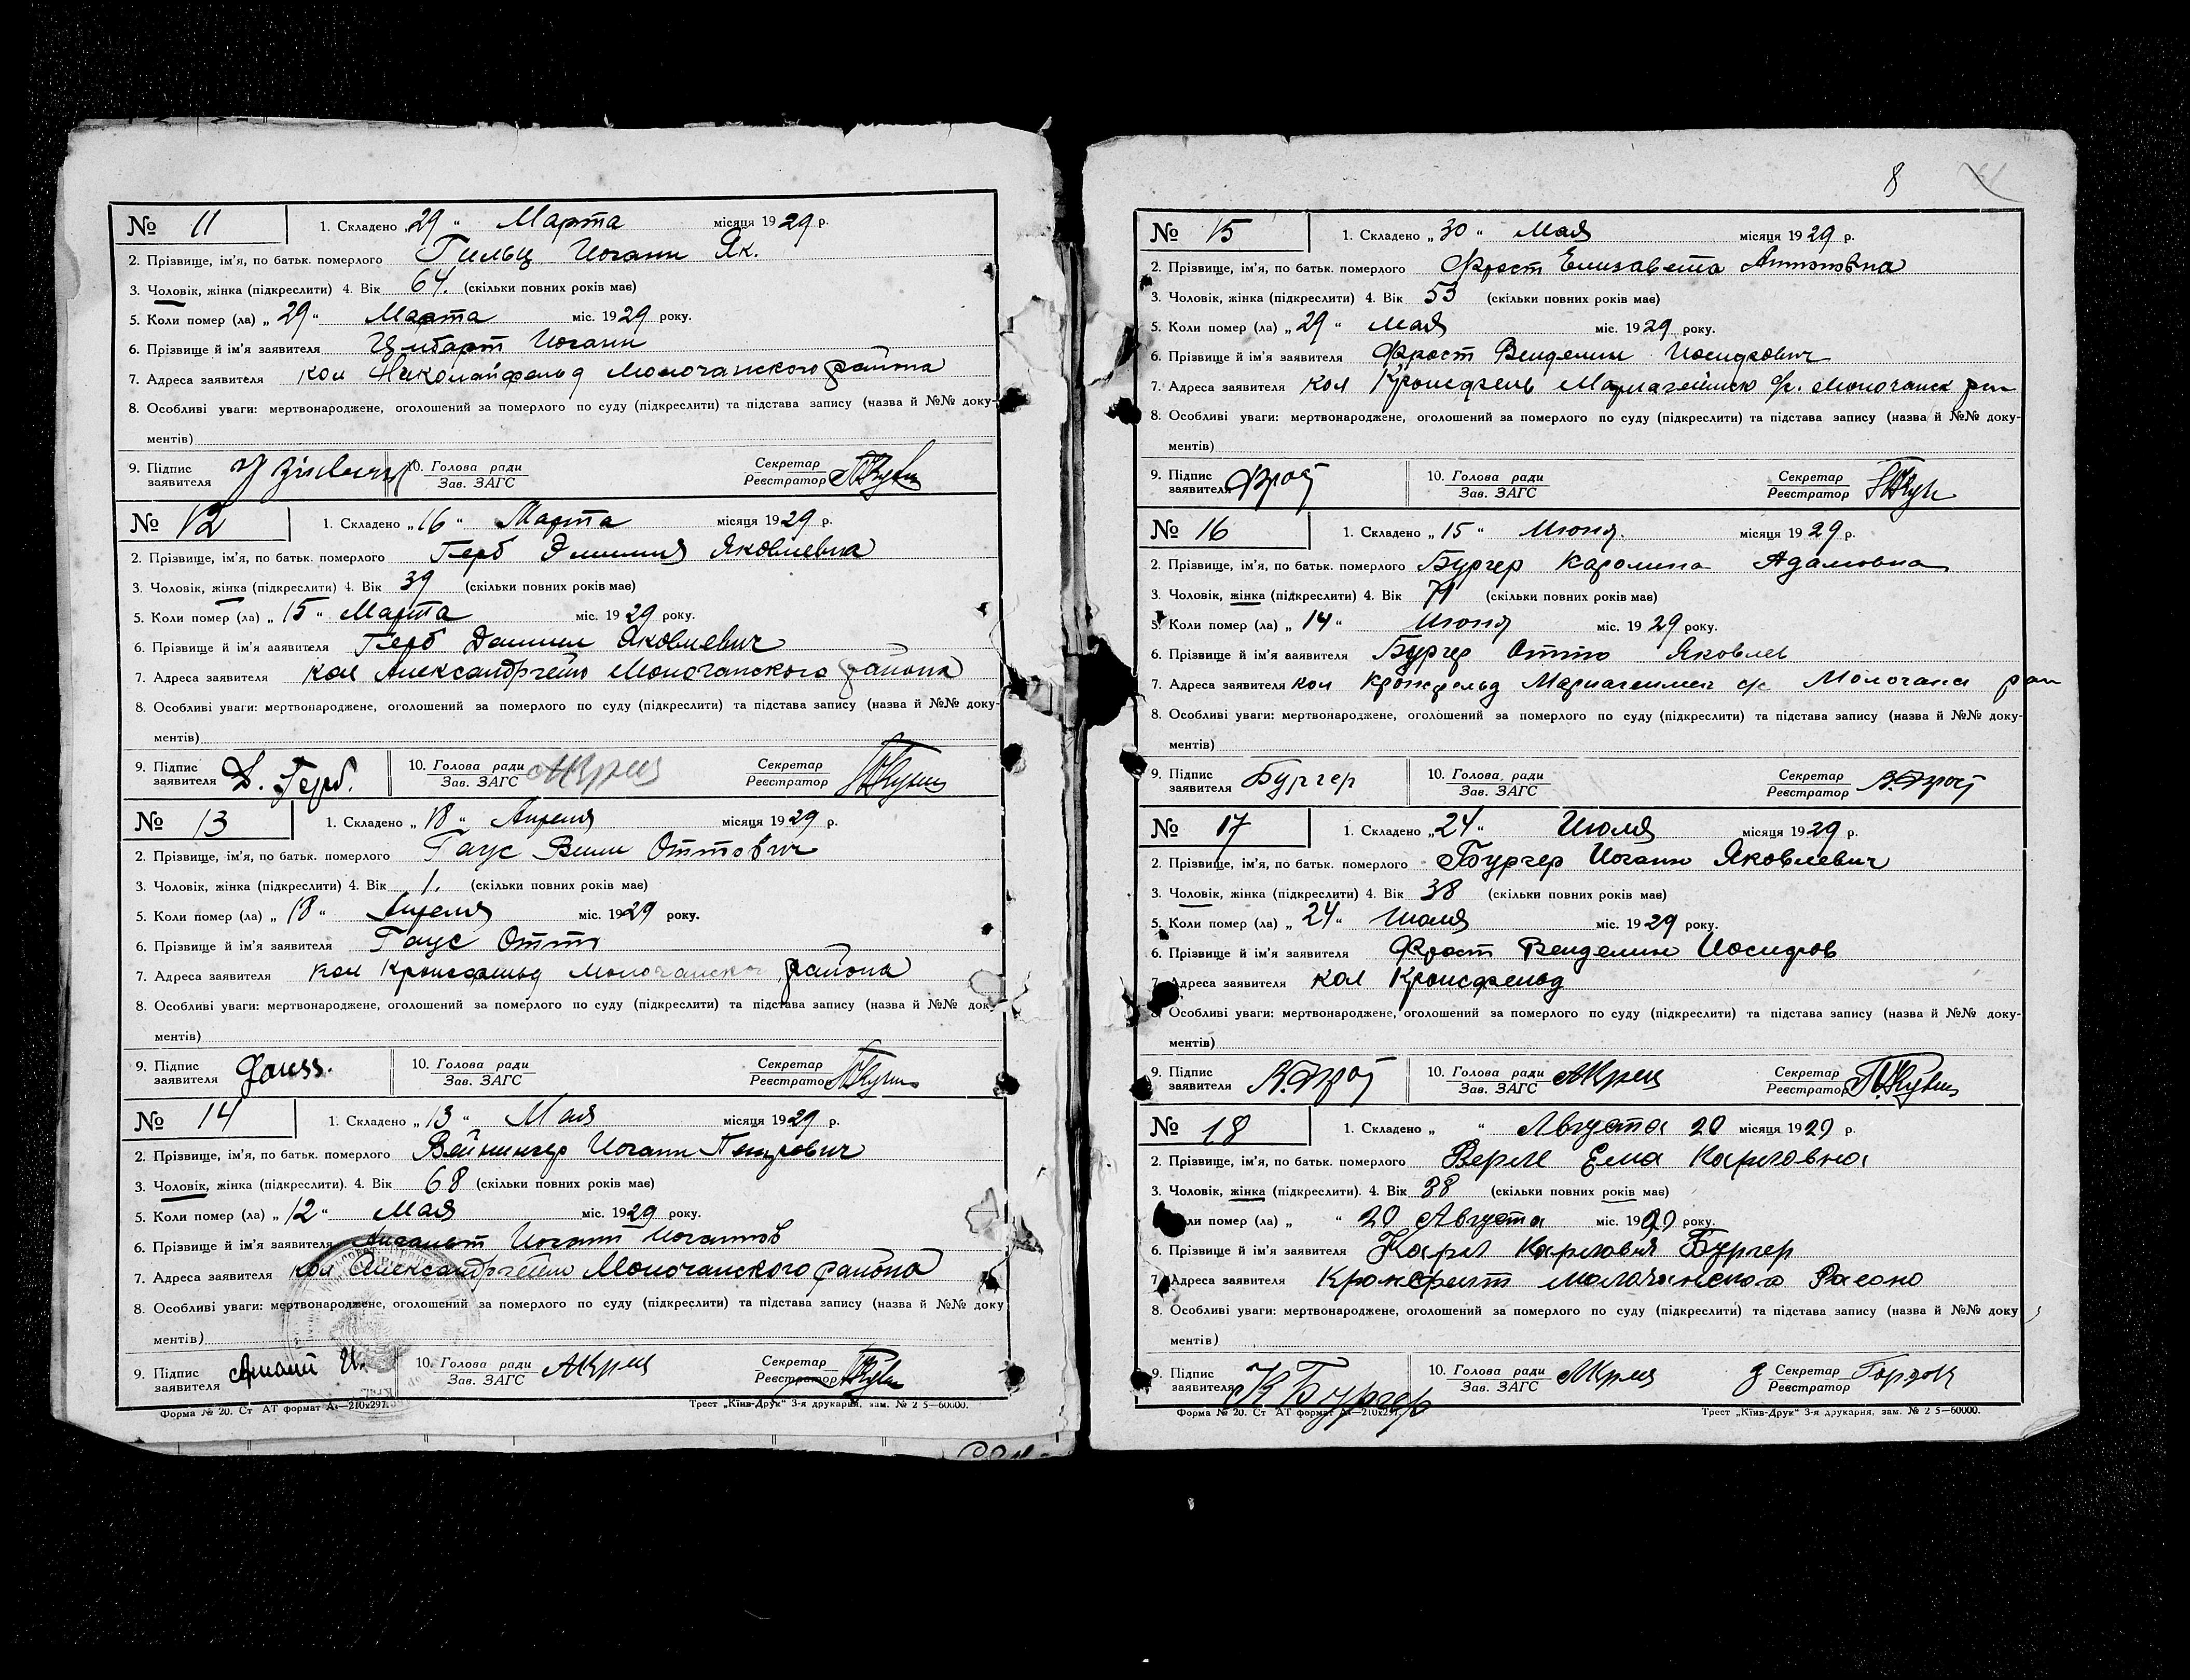 № 11 1. Складено „29“ Марта місяця 1929 р.
2. Прізвище, ім'я, по батьк. померлого Гильц Иоганн Як.
3. Чоловік, жінка (підкреслити) 4. Вік 64. (скільки повних років має)
5. Коли помер (ла) „29“ Марта міс. 1929 року.
6. Прізвище й ім'я заявителя Иоганн
7. Адреса заявителя кол Николайфельд Молочанского района
8. Особливі уваги: мертвонароджене, оголошений за померлого по суду (підкреслити) та підстава запису (назва й №№ доку-
ментів)
9. Підпис заявителя 10. Голова ради Зав. ЗАГС Секретар Реєстратор
№ 12 1. Складено „16“ Марта місяця 1929 р.
2. Прізвище, ім'я, по батьк. померлого Герб Эмилия Яковлевна
3. Чоловік, жінка (підкреслити) 4. Вік 39 (скільки повних років має)
5. Коли помер (ла) „15“ Марта міс. 1929 року.
6. Прізвище й ім'я заявителя Герб Даниил Яковлевич
7. Адреса заявителя кол Александргейм Молочанского района
8. Особливі уваги: мертвонароджене, оголошений за померлого по суду (підкреслити) та підстава запису (назва й №№ доку-
ментів)
9. Підпис заявителя Д. Герб. 10. Голова ради Зав. ЗАГС Секретар Реєстратор
№ 13 1. Складено „18“ Апреля місяця 1929 р.
2. Прізвище, ім'я, по батьк. померлого Гаус Вили Оттович
3. Чоловік, жінка (підкреслити) 4. Вік 1. (скільки повних років має)
5. Коли помер (ла) „18“ Апреля міс. 1929 року.
6. Прізвище й ім'я заявителя Гаус Отто
7. Адреса заявителя кол Кронсфельд Молочанско района
8. Особливі уваги: мертвонароджене, оголошений за померлого по суду (підкреслити) та підстава запису (назва й №№ доку-
ментів)
9. Підпис заявителя Gauss. 10. Голова ради Зав. ЗАГС Секретар Реєстратор
№ 14 1. Складено „13“ Мая місяця 1929 р.
2. Прізвище, ім'я, по батьк. померлого Вейнингер Иоганн Петрович
3. Чоловік, жінка (підкреслити). 4. Вік 68 (скільки повних років має)
5. Коли помер (ла) „12“ Мая міс. 1929 року.
6. Прізвище й ім'я заявителя Иоганн Иоганнов
7. Адреса заявителя кол Александргейм Молочанского района
8. Особливі уваги: мертвонароджене, оголошений за померлого по суду (підкреслити) та підстава запису (назва й №№ доку
ментів)
9. Підпис заявителя 10. Голова ради Зав. ЗАГС Секретар Реєстратор
Форма № 20. Ст АТ формат А4—210х297. Трест „Київ-Друк“ 3-я друкарня, зам. № 2 5—60000.
8
№ 15 1. Складено „30“ Мая місяця 1929 р.
2. Прізвище, ім'я, по батьк. померлого Фрост Елизавета Антоновна
3. Чоловік, жінка (підкреслити) 4. Вік 53 (скільки повних років має)
5. Коли помер (ла) „29“ мая міс. 1929 року.
6. Прізвище й ім'я заявителя Фрост Венделин Иосифович
7. Адреса заявителя кол Молочанск
8. Особливі уваги: мертвонароджене, оголошений за померлого по суду (підкреслити) та підстава запису (назва й №№ доку-
ментів)
9. Підпис заявителя 10. Голова ради Зав. ЗАГС Секретар Реєстратор
№ 16 1. Складено „15“ Июня. місяця 1929 р.
2. Прізвище, ім'я, по батьк. померлого Бургер Каролина Адамовна
3. Чоловік, жінка (підкреслити) 4. Вік 71 (скільки повних років має)
5. Коли помер (ла) „14“ Июня міс. 1929 року.
6. Прізвище й ім'я заявителя Бургер Отто Яковлев
7. Адреса заявителя кол Кронсфельд
8. Особливі уваги: мертвонароджене, оголошений за померлого по суду (підкреслити) та підстава запису (назва й №№ доку-
ментів)
9. Підпис заявителя Бургер 10. Голова ради Зав. ЗАГС Секретар Реєстратор
№ 17 1. Складено „24“ Июля місяця 1929 р.
2. Прізвище, ім'я, по батьк. померлого Бургер Иоганн Яковлевич
3. Чоловік, жінка (підкреслити) 4. Вік 38 (скільки повних років має)
5. Коли помер (ла) „24“ Июля міс. 1929 року.
6. Прізвище й ім'я заявителя Фрост Венделин Иосифов
7. Адреса заявителя кол Кронсфельд
8. Особливі уваги: мертвонароджене, оголошений за померлого по суду (підкреслити) та підстава запису (назва й №№ доку-
ментів)
9. Підпис заявителя 10. Голова ради Зав. ЗАГС Секретар Реєстратор
№ 18 1. Складено „ “ Августа 20 місяця 1929 р.
2. Прізвище, ім'я, по батьк. померлого Ема Карловна
3. Чоловік, жінка (підкреслити). 4. Вік 38 (скільки повних років має)
ли помер (ла) „ “ 20 Августа міс. 1929 року.
6. Прізвище й ім'я заявителя Карл Карлович Бургер
7. Адреса заявителя Молочанского
8. Особливі уваги: мертвонароджене, оголошений за померлого по суду (підкреслити) та підстава запису (назва й №№ доку
ментів)
9. Підпис заявителя К Бургер 10. Голова ради Зав. ЗАГС Секретар Реєстратор
Форма № 20. Ст АТ формат А4—210х297. Трест „Київ-Друк“ 3-я друкарня, зам. № 2 5—60000.